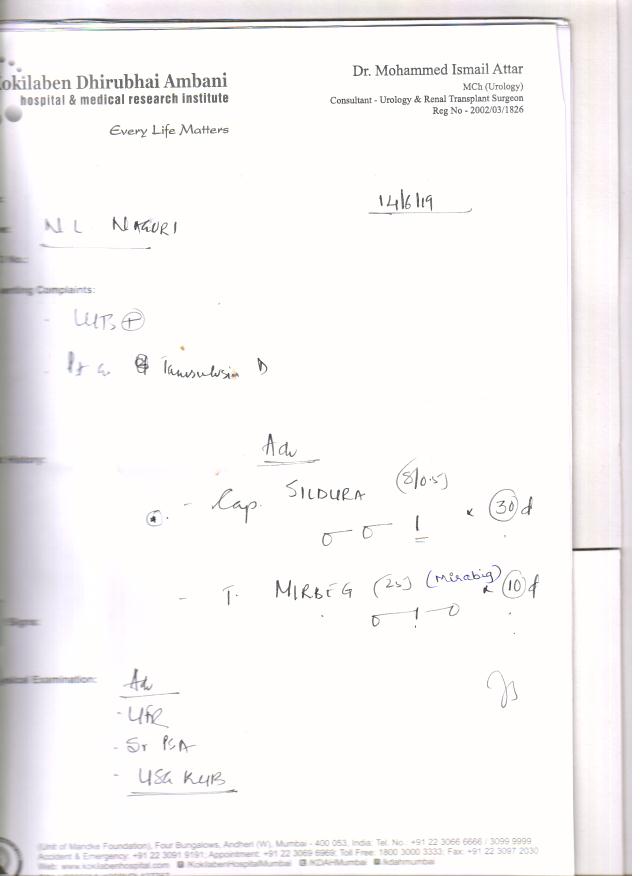 okilaben Dhirubhai Ambani
hospital & medical research institute
Every Life Matters
Dr. Mohammed Ismail Attar
MCh (Urology)
Consultant - Urology & Renal Transplant Surgeon
Reg No - 2002/03/1826
14/6/19
N L NAGORI
No.:
enting Complaints:
- LUTS +
Tamsulosin D
History:
Adv
- Cap. SILDURA (8/0.5) x 30 d
0 - 0 - 1
- T. MIRBEG (25) (Mirabig) x 10 d
0 - 1 - 0
Signs:
ysical Examination:
Adv
- UFR
- Sr PSA
- USG KUB
(Unit of Mandke Foundation), Four Bungalows, Andheri (W), Mumbai - 400 053, India. Tel. No.: +91 22 3066 6666 / 3099 9999
Accident & Emergency: +91 22 3091 9191; Appointment: +91 22 3069 6969; Toll Free: 1800 3000 3333; Fax: +91 22 3097 2030
Web: www.kokilabenhospital.com /KokilabenHospitalMumbai /KDAHMumbai /kdahmumbai